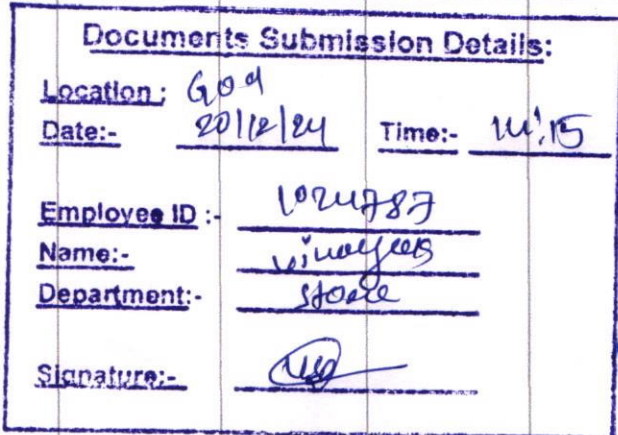 Documents Submission Details:
Location : Goa
Date:- 20/12/24 Time:- 14:15
Employee ID :- 1024787
Name:-
Department:- Store
Signature:-